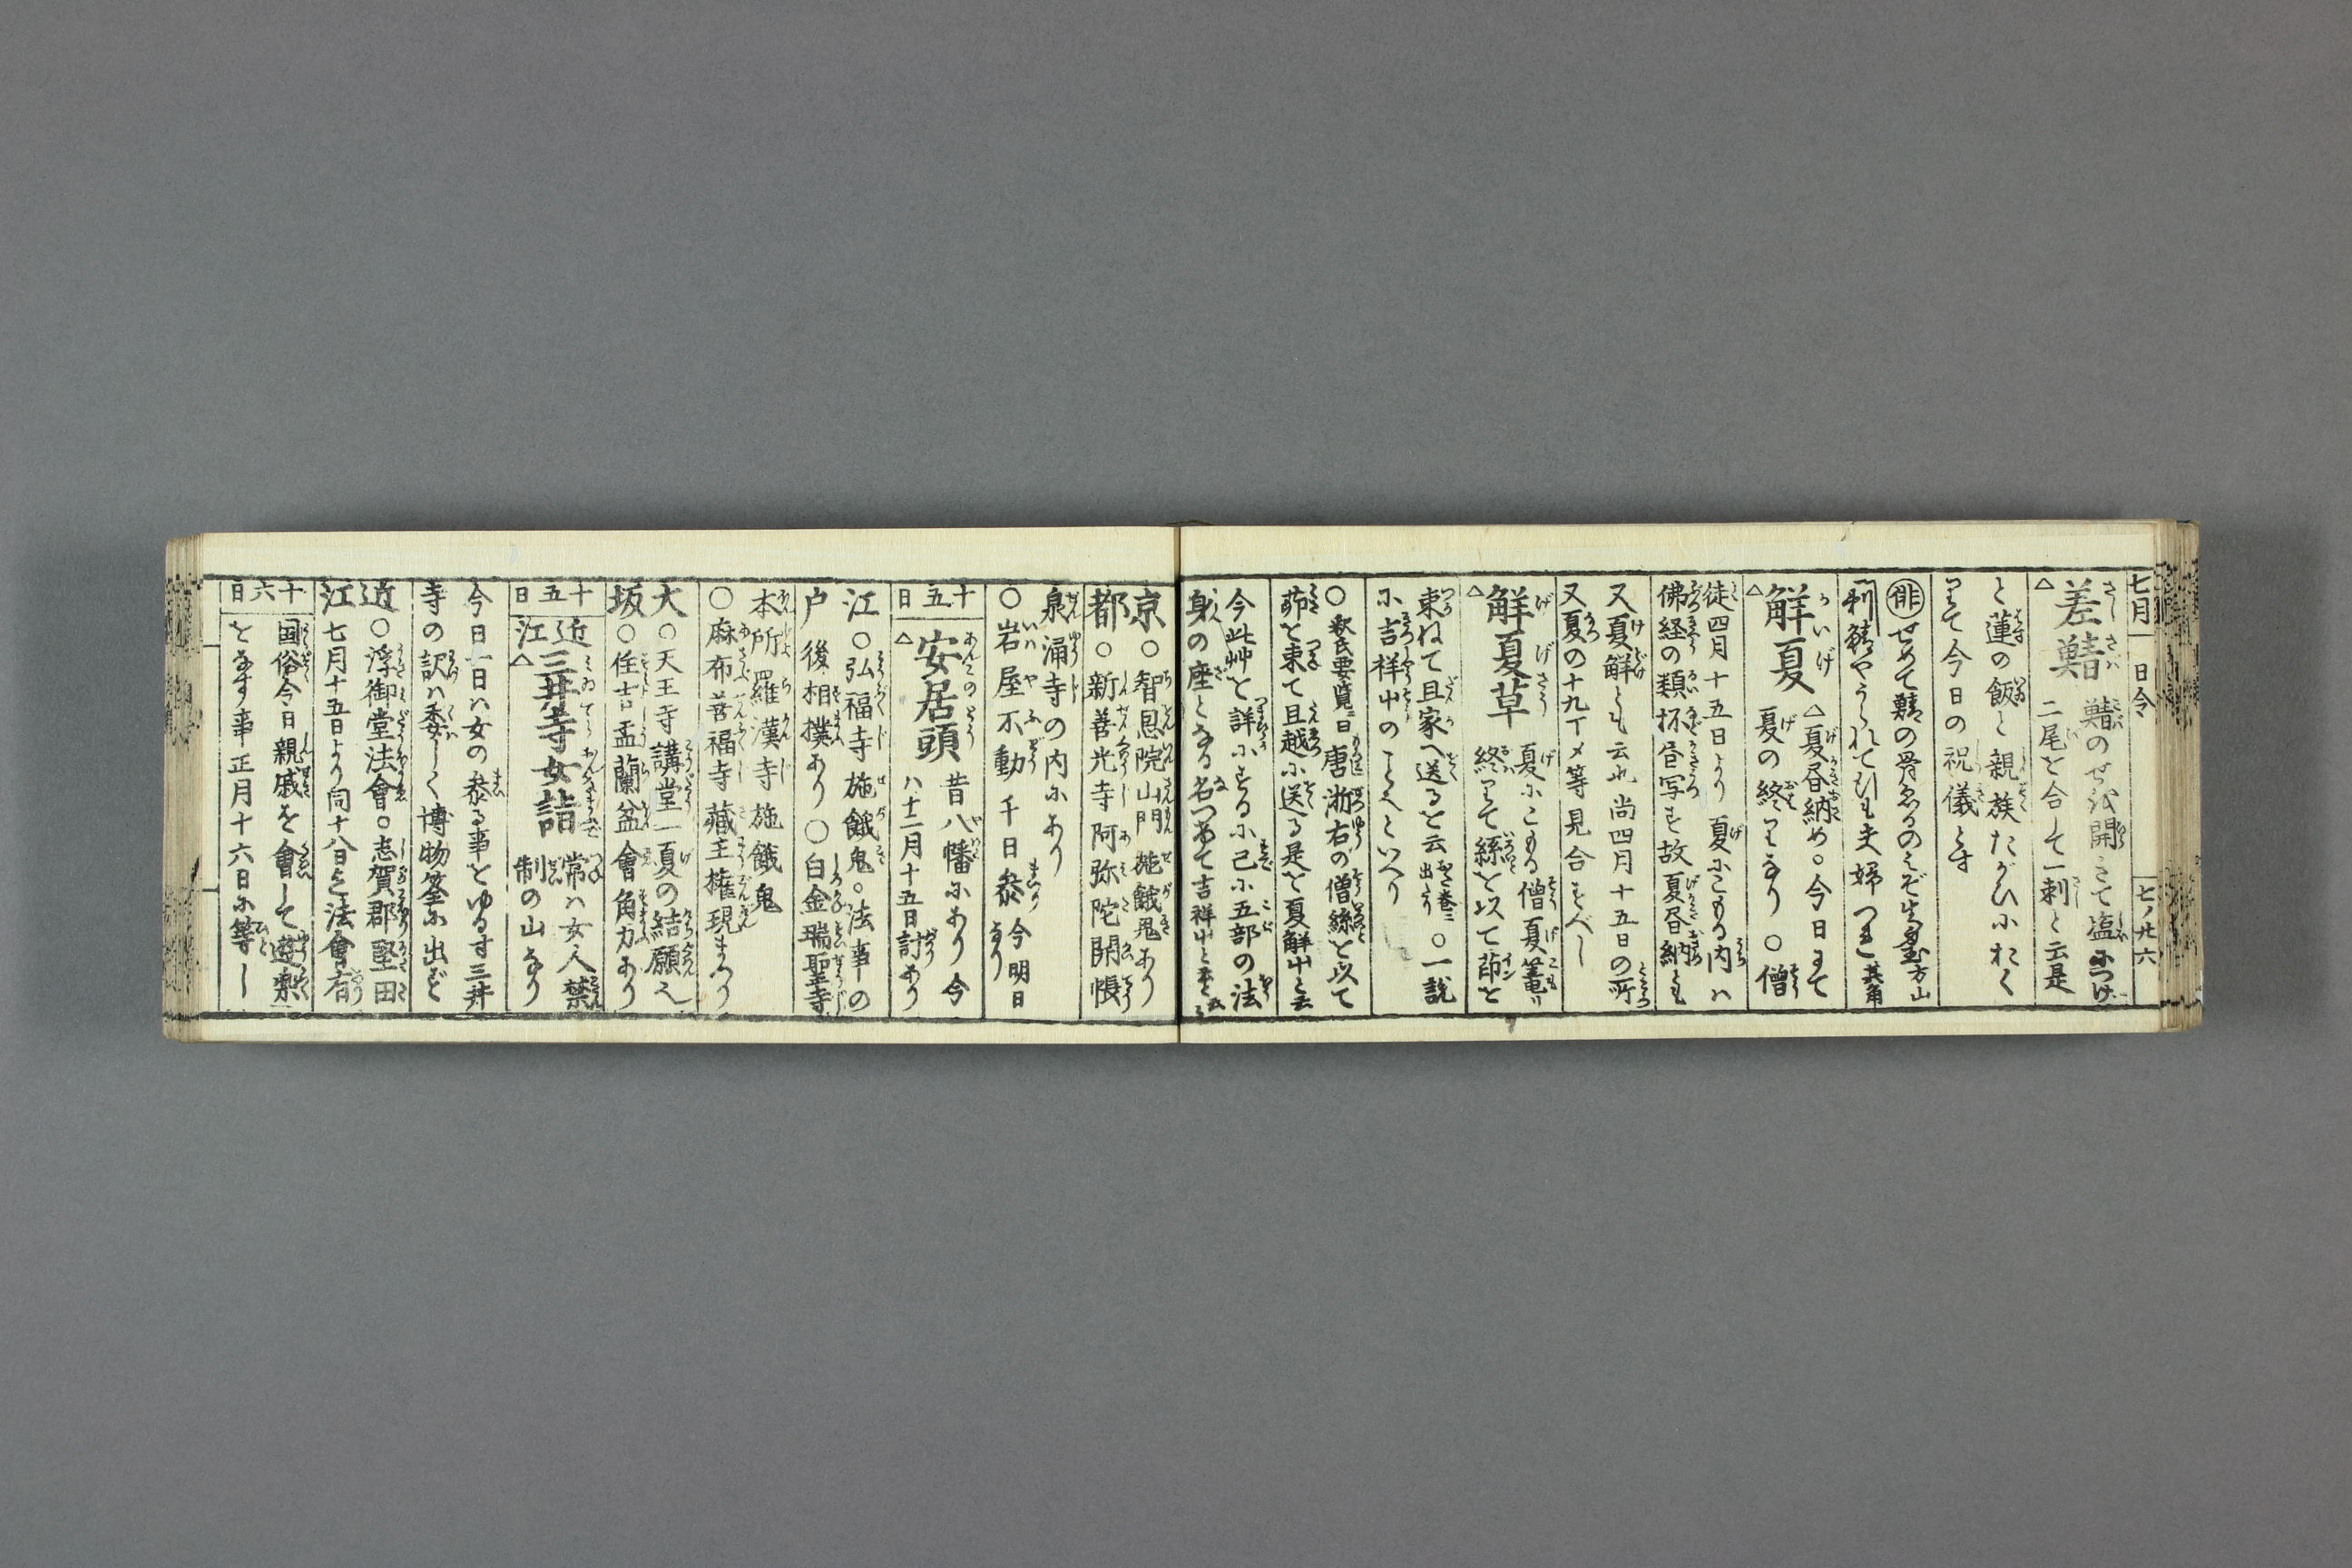 七月 日令 七ノ廿六
差鯖 鯖のせを開きて塩につけ
△ 二尾を合して一刺と云是
と蓮の飯と親族たがひにおく
りて今日の祝儀とす
俳 せめて鯖の 方山
刺鯖や 夫婦つれ 其角
解夏 △夏書納め○今日まで
△ 夏の終りなり ○僧
徒四月十五日より夏にこもる内ハ
佛経の類抔書写す故夏書納とも
又夏解とも云也尚四月十五日の所
又夏の十九丁メ等見合すべし
解夏草 夏にこもる僧夏篭リ
△ 終りて絲を以て茆を
束ねて且家へ送ると云 出ヅ ○一説
に吉祥艸のことへといへり
○釈氏要覧ニ曰唐浙右の僧絲を以て
茆を束て且越に送る是を夏解艸と云
今此艸を詳にするに己に五部の法
身の座となる名つけて吉祥艸と云
京 ○智恩院山門施餓鬼あり
都 ○新善光寺阿弥陀開帳
泉涌寺の内にあり
○岩屋不動 千日参 今明日なり
十五日 安居頭 昔八幡にあり今
△ ハ十二月十五日計あり
江 ○弘福寺施餓鬼○法事の
戸 後相撲あり ○白金瑞聖寺
本所羅漢寺施餓鬼
○麻布善福寺藏王権現まつり
大 ○天王寺講堂一夏の結願之
坂 ○住吉盂蘭盆會角力あり
十五日 近江 三井寺女詣 常ハ女人禁
△ 制の山なり
今日一日ハ女の参る事をゆるす三井
寺の訳ハ委しく博物筌に出ず
近 ○浮御堂法會○志賀郡堅田
江 七月十五日より同十八日迄法會有
十六日 国俗今日親戚を會して遊楽
をなす事正月十六日に等し